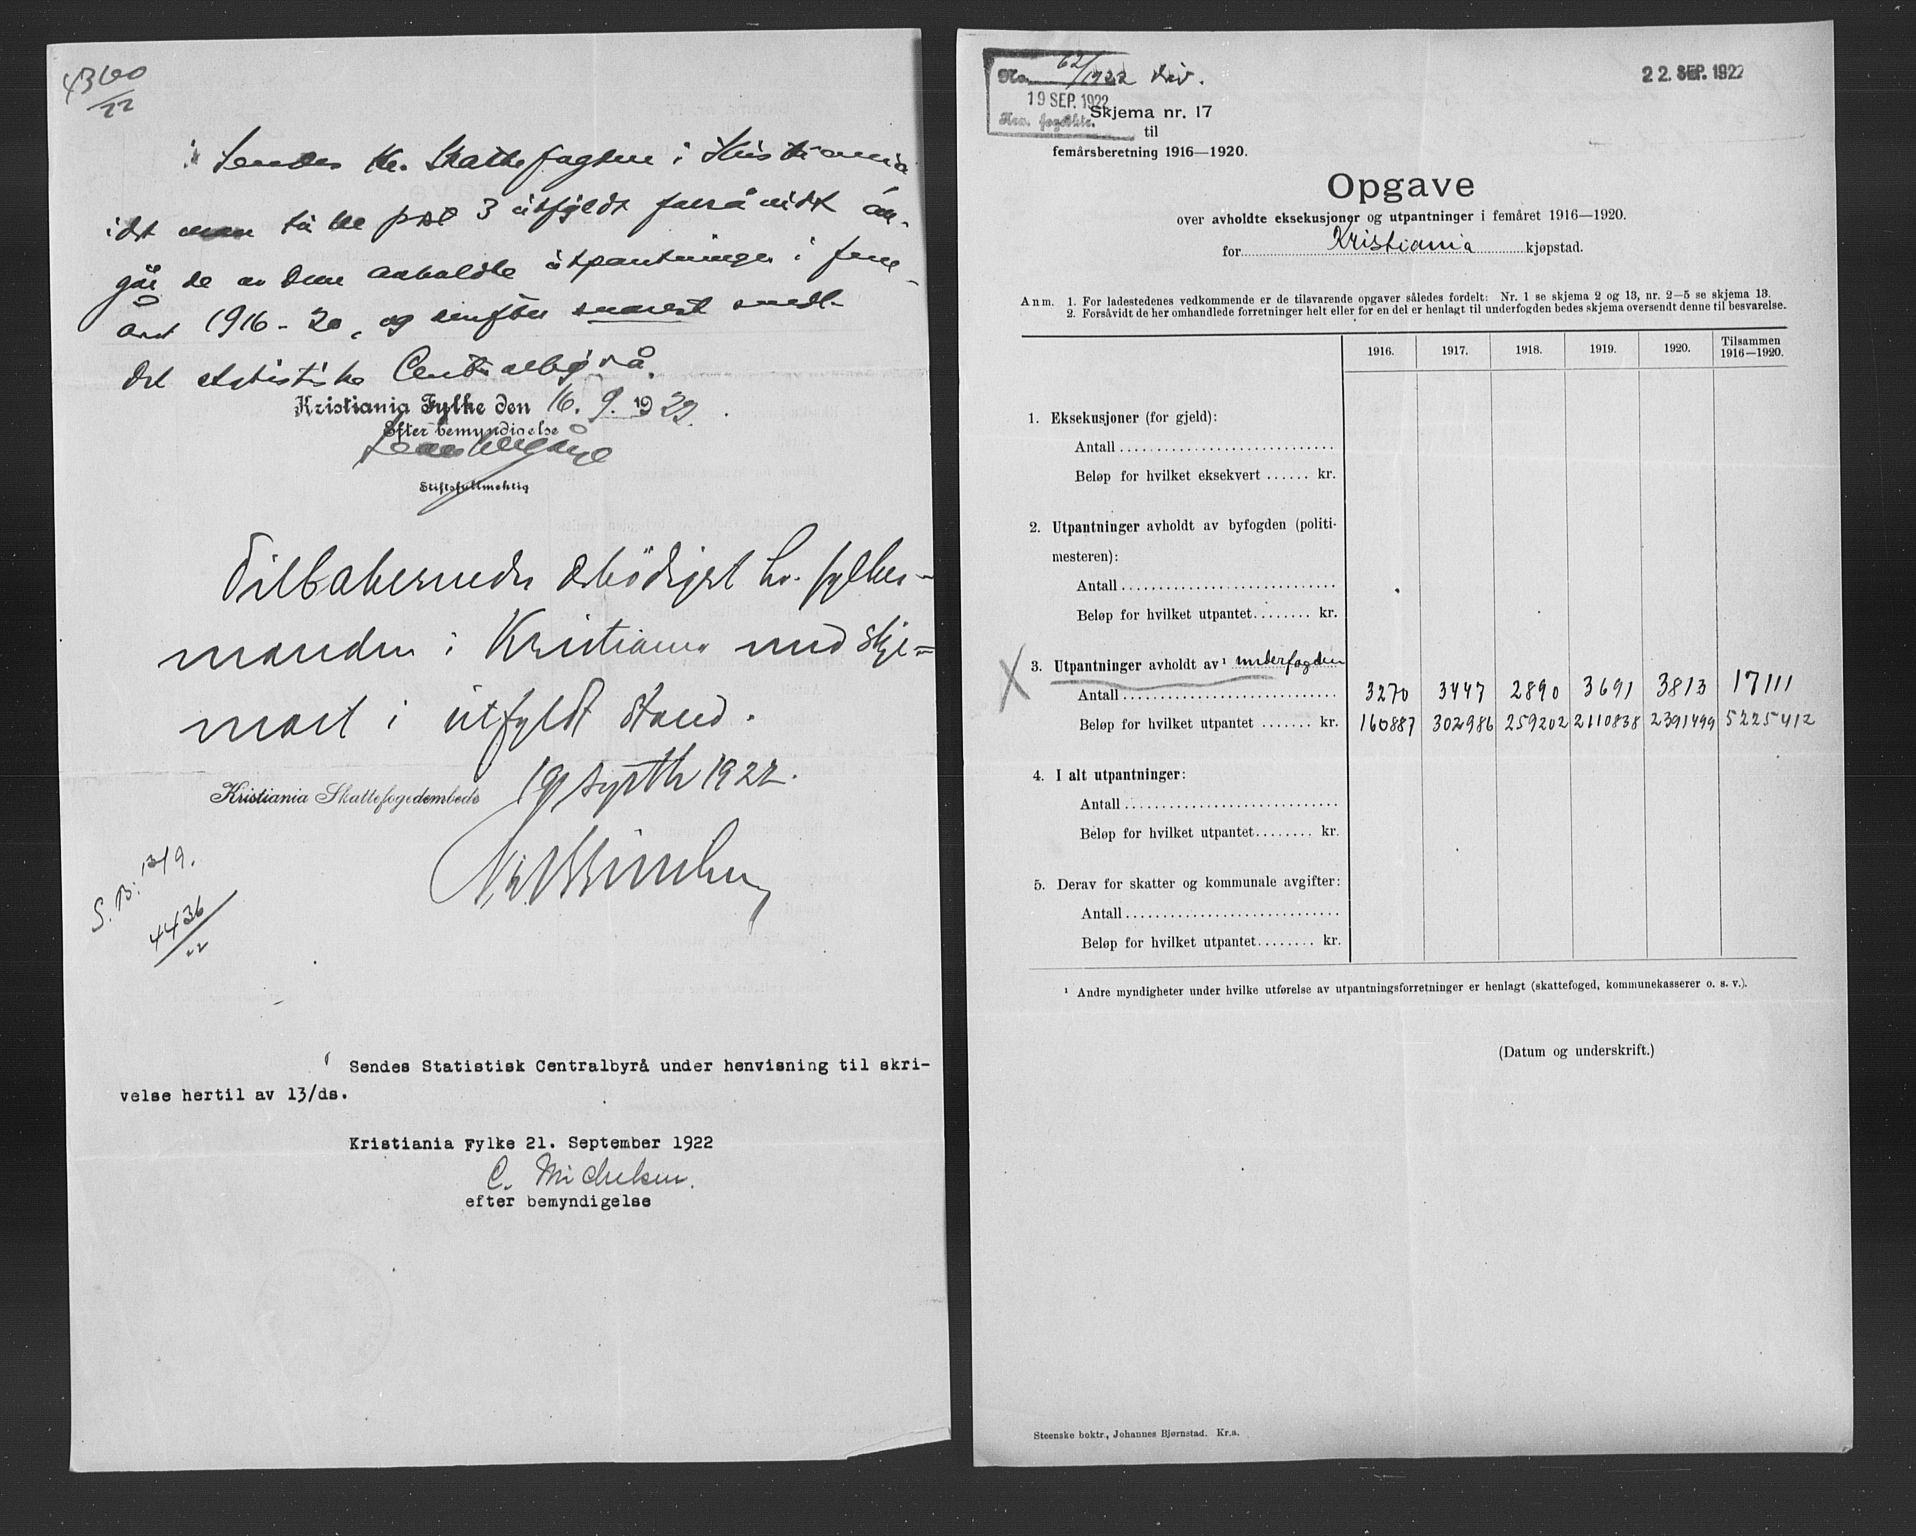 4360
22
Sendes Hr. Skattefogden i Kristiania
idet man få be post 3 utfyldt forsåvidt án-
går de av Dem avholdte utpantninger i fem-
året 1916-20, og derefter snarest sendt
det statistiske Centralbyrå.
Kristiania Fylke den 16. 9. 1922.
Efter bemyndigelse
Stiftsfullmektig
Tilbakesendes ærbödigst hr. fylkes-
manden i Kristiania med skje-
maet i utfyldt stand.
Kristiania Skattefogedembede 19 septbr 1922.
S. B: 13/9.
4436
22
Sendes Statistisk Centralbyrå under henvisning til skri-
velse hertil av 13/ds.
Kristiania Fylke 21. September 1922
C. Michelsen.
efter bemyndigelse
No. 62/1922 div.
19 SEP. 1922
22. SEP. 1922
Skjema nr. 17
til
femårsberetning 1916—1920.
Opgave
over avholdte eksekusjoner og utpantninger i femåret 1916—1920.
for Kristiania kjøpstad.
Anm. 1. For ladestedenes vedkommende er de tilsvarende opgaver således fordelt: Nr. 1 se skjema 2 og 13, nr. 2—5 se skjema 13.
2. Forsåvidt de her omhandlede forretninger helt eller for en del er henlagt til underfogden bedes skjema oversendt denne til besvarelse.
1916. 1917. 1918. 1919. 1920. Tilsammen 1916—1920.
1. Eksekusjoner (for gjeld):
Antall
Beløp for hvilket eksekvert ...... kr.
2. Utpantninger avholdt av byfogden (politi-
mesteren):
Antall
Beløp for hvilket utpantet........ kr.
X 3. Utpantninger avholdt av¹ underfogden
Antall 3270 3447 2890 3691 3813 17111
Beløp for hvilket utpantet ....... kr. 160887 302986 259202 2110838 2391499 5225412
4. I alt utpantninger:
Antall
Beløp for hvilket utpantet........ kr.
5. Derav for skatter og kommunale avgifter:
Antall
Beløp for hvilket utpantet........ kr.
¹ Andre myndigheter under hvilke utførelse av utpantningsforretninger er henlagt (skattefoged, kommunekasserer o. s. v.).
(Datum og underskrift.)
Steenske boktr., Johannes Bjørnstad. Kr.a.